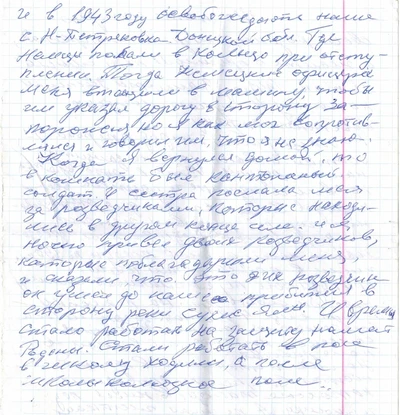 и в 1943 году освобождают наше
с. Н-Петриковка Донецкой обл. Где
немцы попали в кольцо при отсту-
плении. Тогда немецкие офицера
меня втащили в машину, чтобы
им указал дорогу в сторону За-
порожья но я как мог сопротив-
лялся и говорил им, что я не знаю.
Когда я вернулся домой, то
в комнате был контуженый
солдат и сестра послала меня
за разведчиками, которые находи-
лись в другом конце села. и я
ночью привел двоих разведчиков,
которые поблагодарили меня,
и сказали что это
в
сторону реки Сухие-Ялы. И время
стало работать на защиту нашей
Родины. Стали работать в поле
в школу ходили, а после
школы колхозное поле.